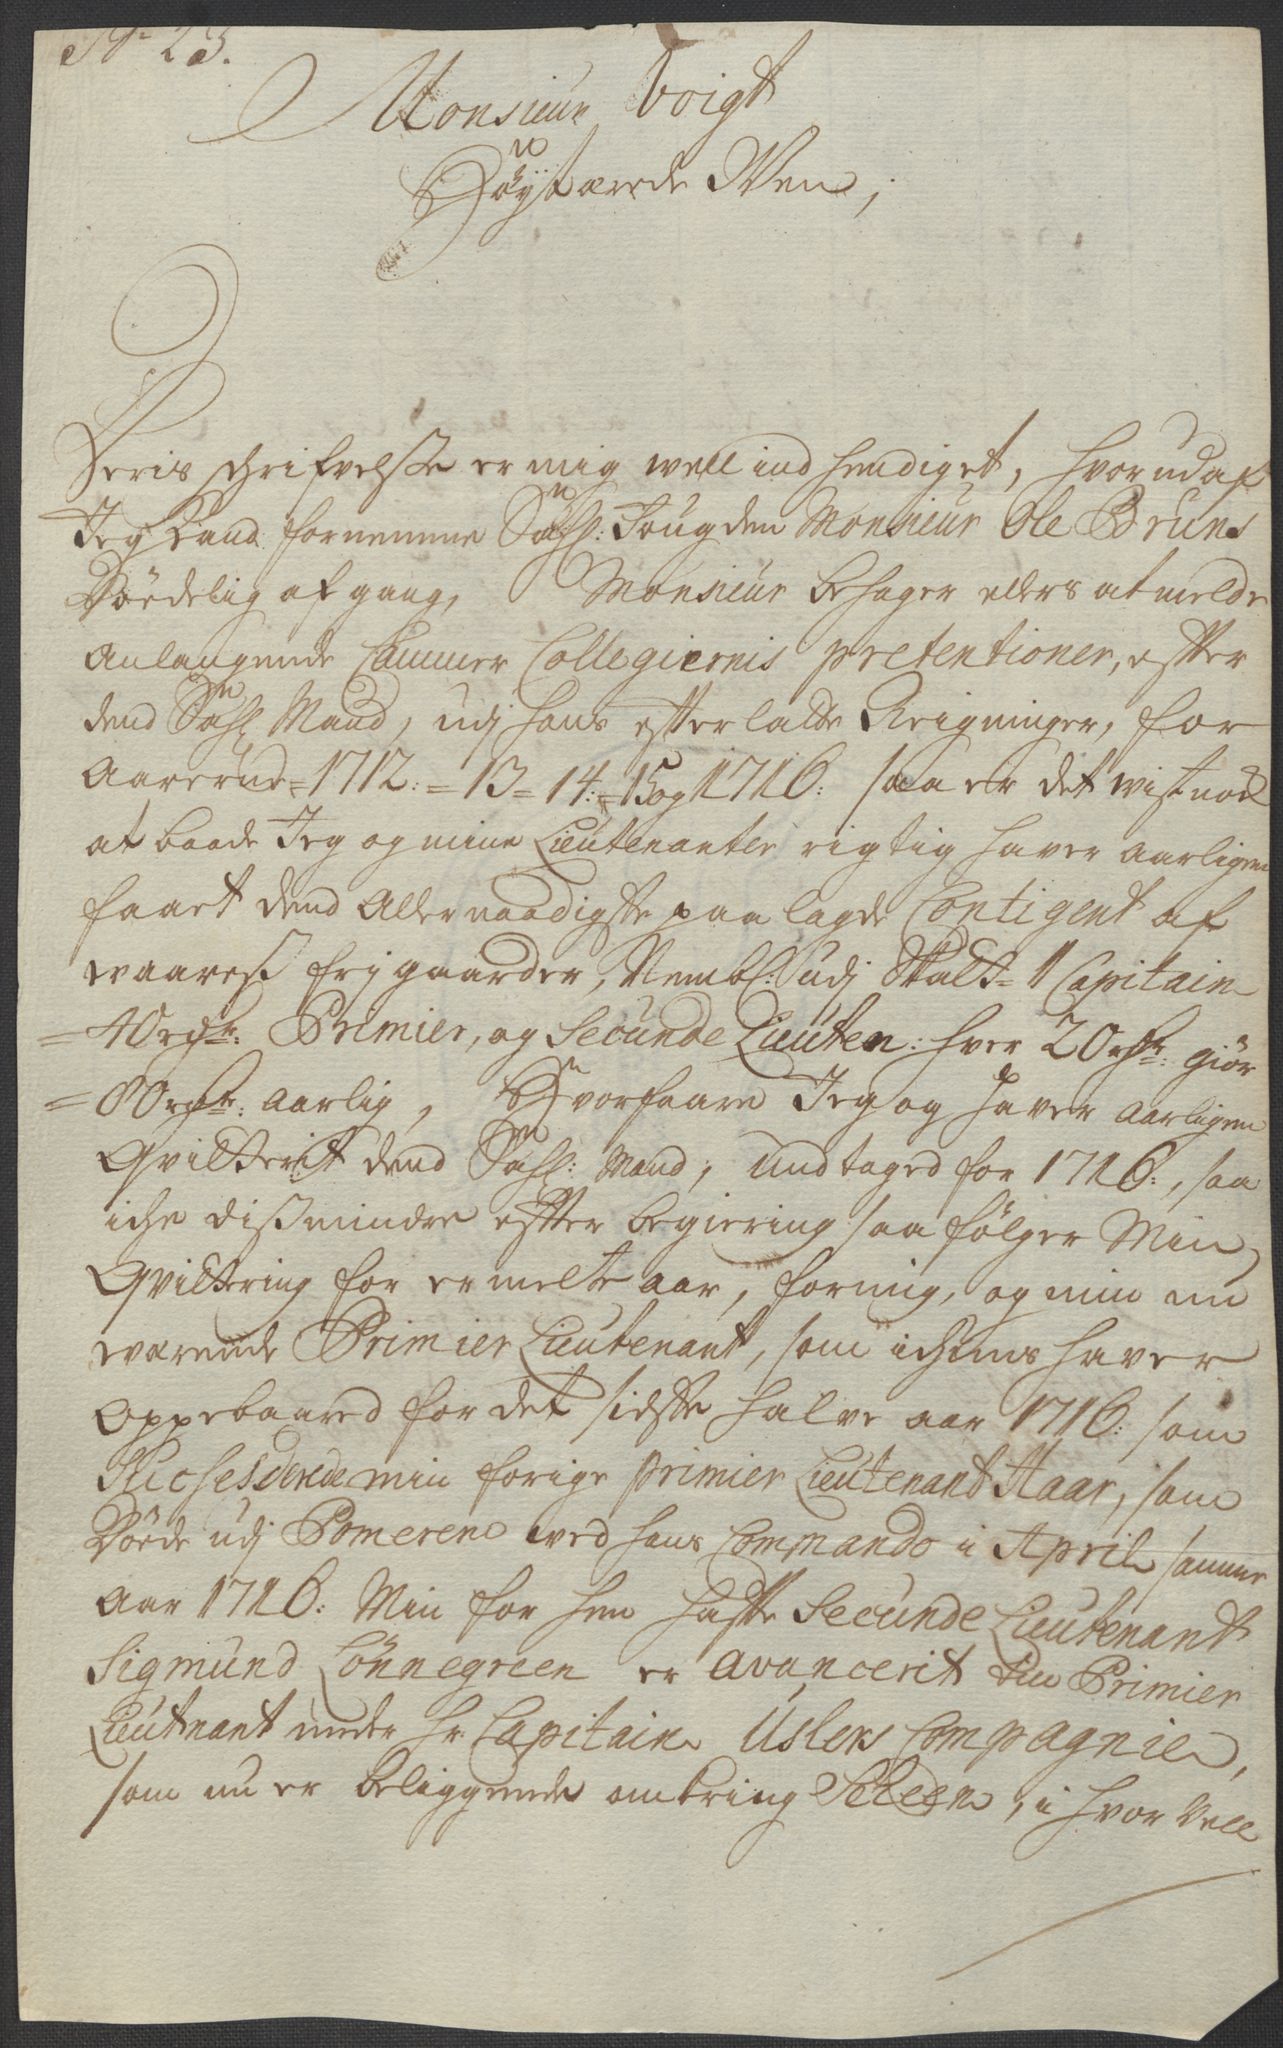 No 23.
Monsieur Voigt
Høytærede Wen,
Deris schrifvelse er mig well ind hendiget, hvor udaf
Jeg kand fornemme Sahl: fougden Monsieur Ole Bruns
Dødelig afgang, Monsieur behager ellers at melde
anlangende Cammer Collegiernis pretentioner, effter
dend Sahl: Mand, udj hans effterlatte Reigninger, for
Aarerne = 1712: = 13 = 14: = 15 og 1716: saa er det wist nock
at baade Jeg og mine Lieutenanter rigtig haver aarligen
faaet dend Allernaadigste paalagde Contigent af
waareß frjgaarder, Nembl: udj Skatt = 1 Capitain
= 40 rdr: Premier, og Secunde Lieuten: hver 20 rdr: giør
= 80 rdr: aarlig, Hvorfaare Jeg og haver aarligen
Qvitterit dend Sahl: Mand, undtaged for 1716:, saa
iche dißmindre effter begiering saa følger Min
Qvittering for ermelte aar, for mig, og min nu
werende Primier Lieutenant, som ichuns haver
Oppebaared for det sidste halve aar 1716: som
Suchesderede min forige primier Lieutenant Haar, som
Døde udj Pomeren wed hans Commando i April samme
Aar 1716: Min for hen hafte Secunde Lieutenant
Sigmund Lönnegreen er avancerit till Primier
Lieutnant under hr Capitain Uslers Compagnie,
som nu er beliggende omkring Scheen, i hvor vell